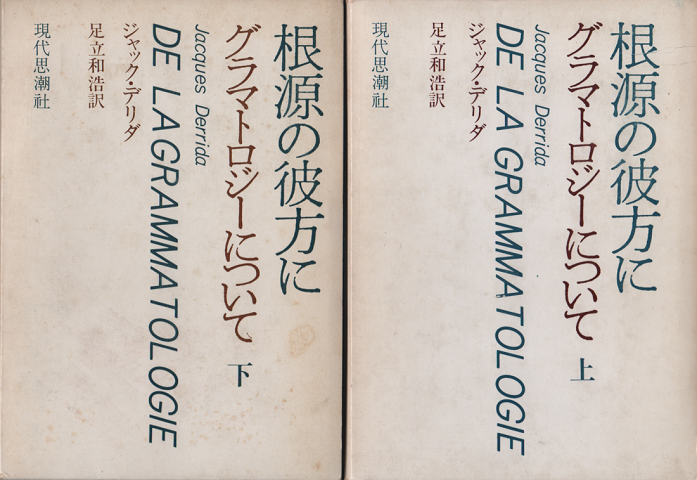 根源の彼方に
グラマトロジーについて 上
Jacques Derrida
DE LA GRAMMATOLOGIE
ジャック・デリダ
足立和浩訳
現代思潮社
根源の彼方に
グラマトロジーについて 下
Jacques Derrida
DE LA GRAMMATOLOGIE
ジャック・デリダ
足立和浩訳
現代思潮社